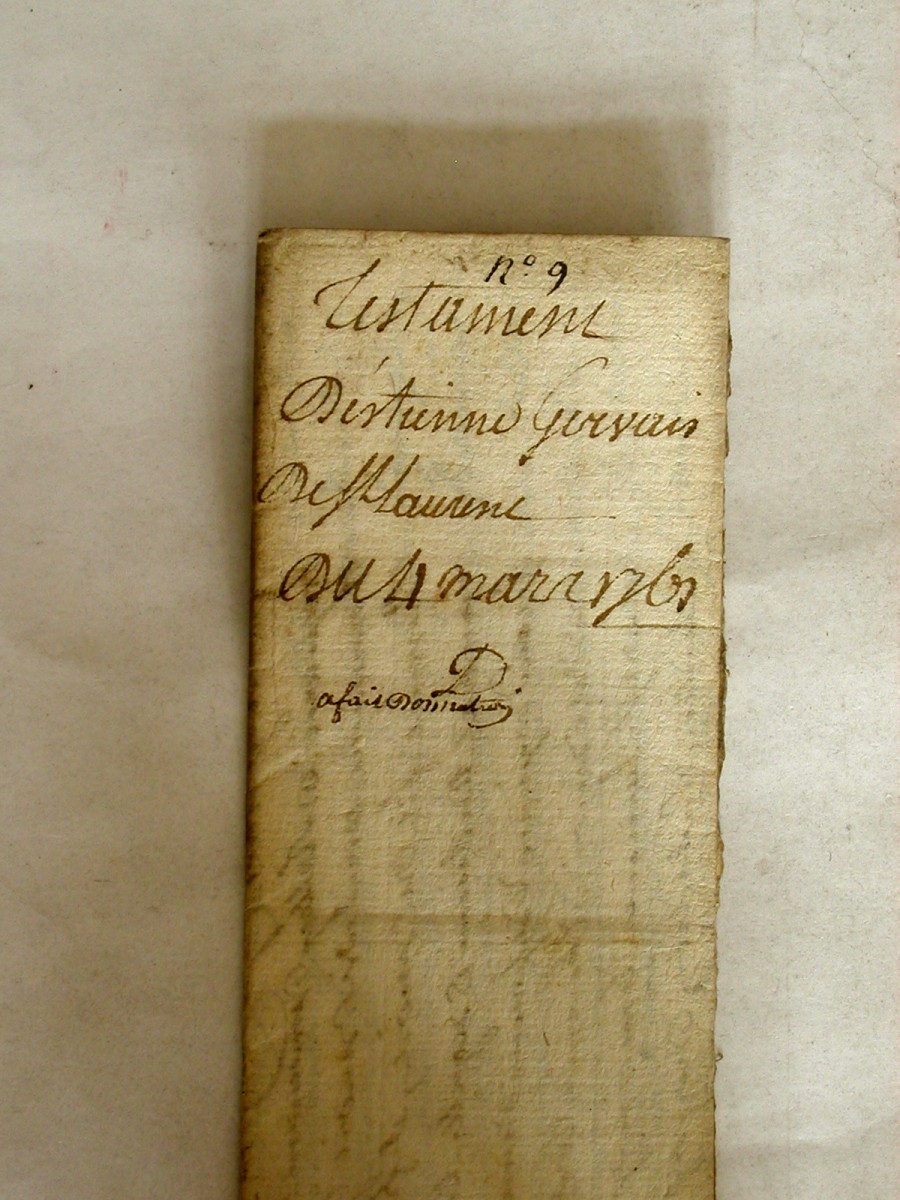 no 9
Testament
D'éstienne Gervais
De St Laurent
Du 4 mars 1761
D
a fait Donnation